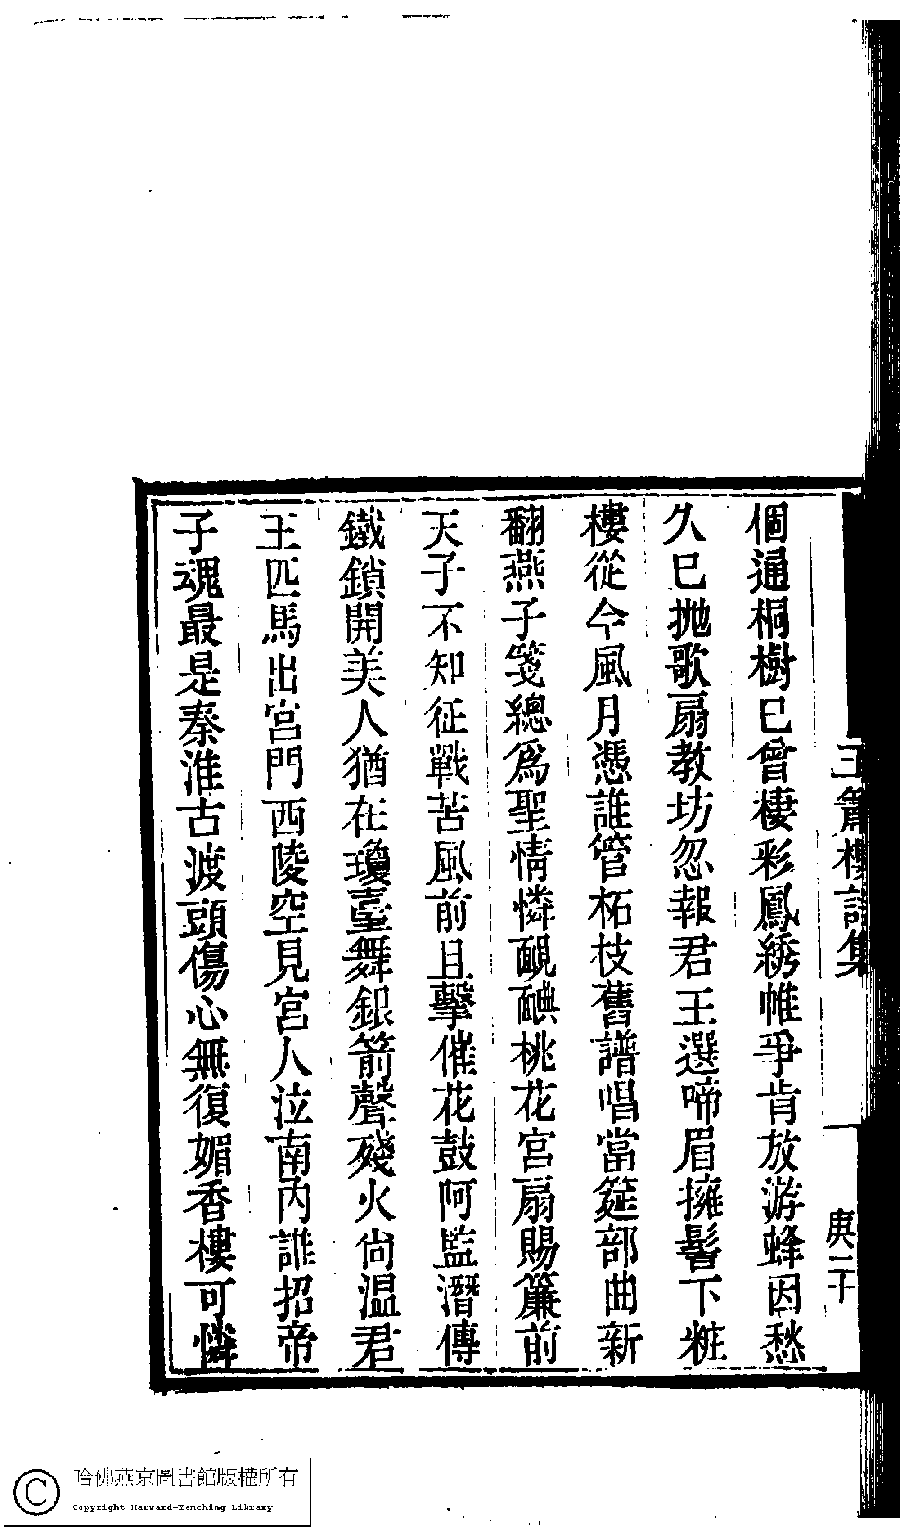 個通桐樹已曾棲彩鳳綉帷爭肯放游蜂因愁
久已抛歌扇教坊忽報君王選啼眉擁髻下粧
樓從今風月憑誰管柘枝舊譜唱當筵部曲新
翻燕子箋總爲聖情憐靦靦桃花宮扇賜簾前
天子不知征戰苦風前且擊催花鼓阿監潛傳
鐵鎖開美人猶在瓊臺舞銀箭聲殘火尚温君
王匹馬出宮門西陵空見宮人泣南內誰招帝
子魂最是秦淮古渡頭傷心無復媚香樓可憐
玉簫樓詩集
一
庚二十
哈佛燕京圖書館版權所有
Copyright Harvard-Yenching Library